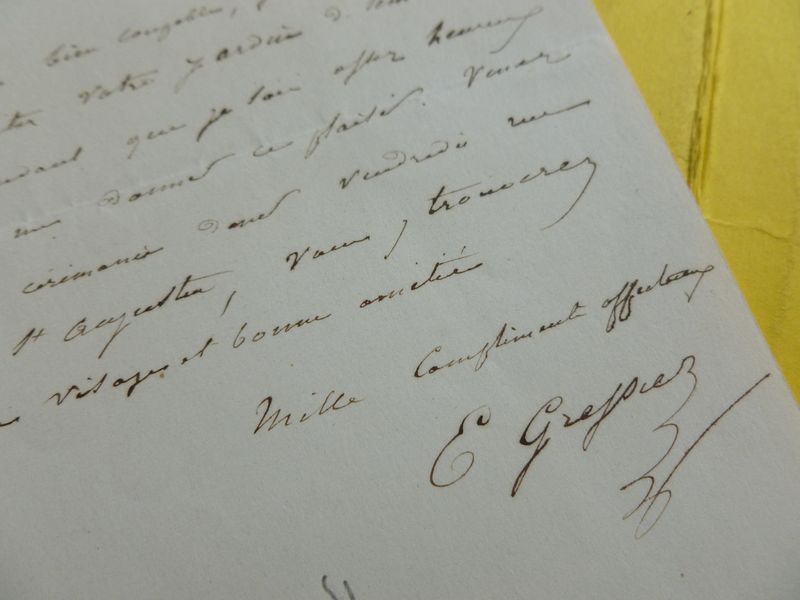 bien
votre jardin d
que je sois assez heureux
me donner ce plaisir. Venez
cérimonie vendredi rue
St Augustin, vous y trouverez
visage et bonne amitié
Mille Compliments affectueux
E Gressier